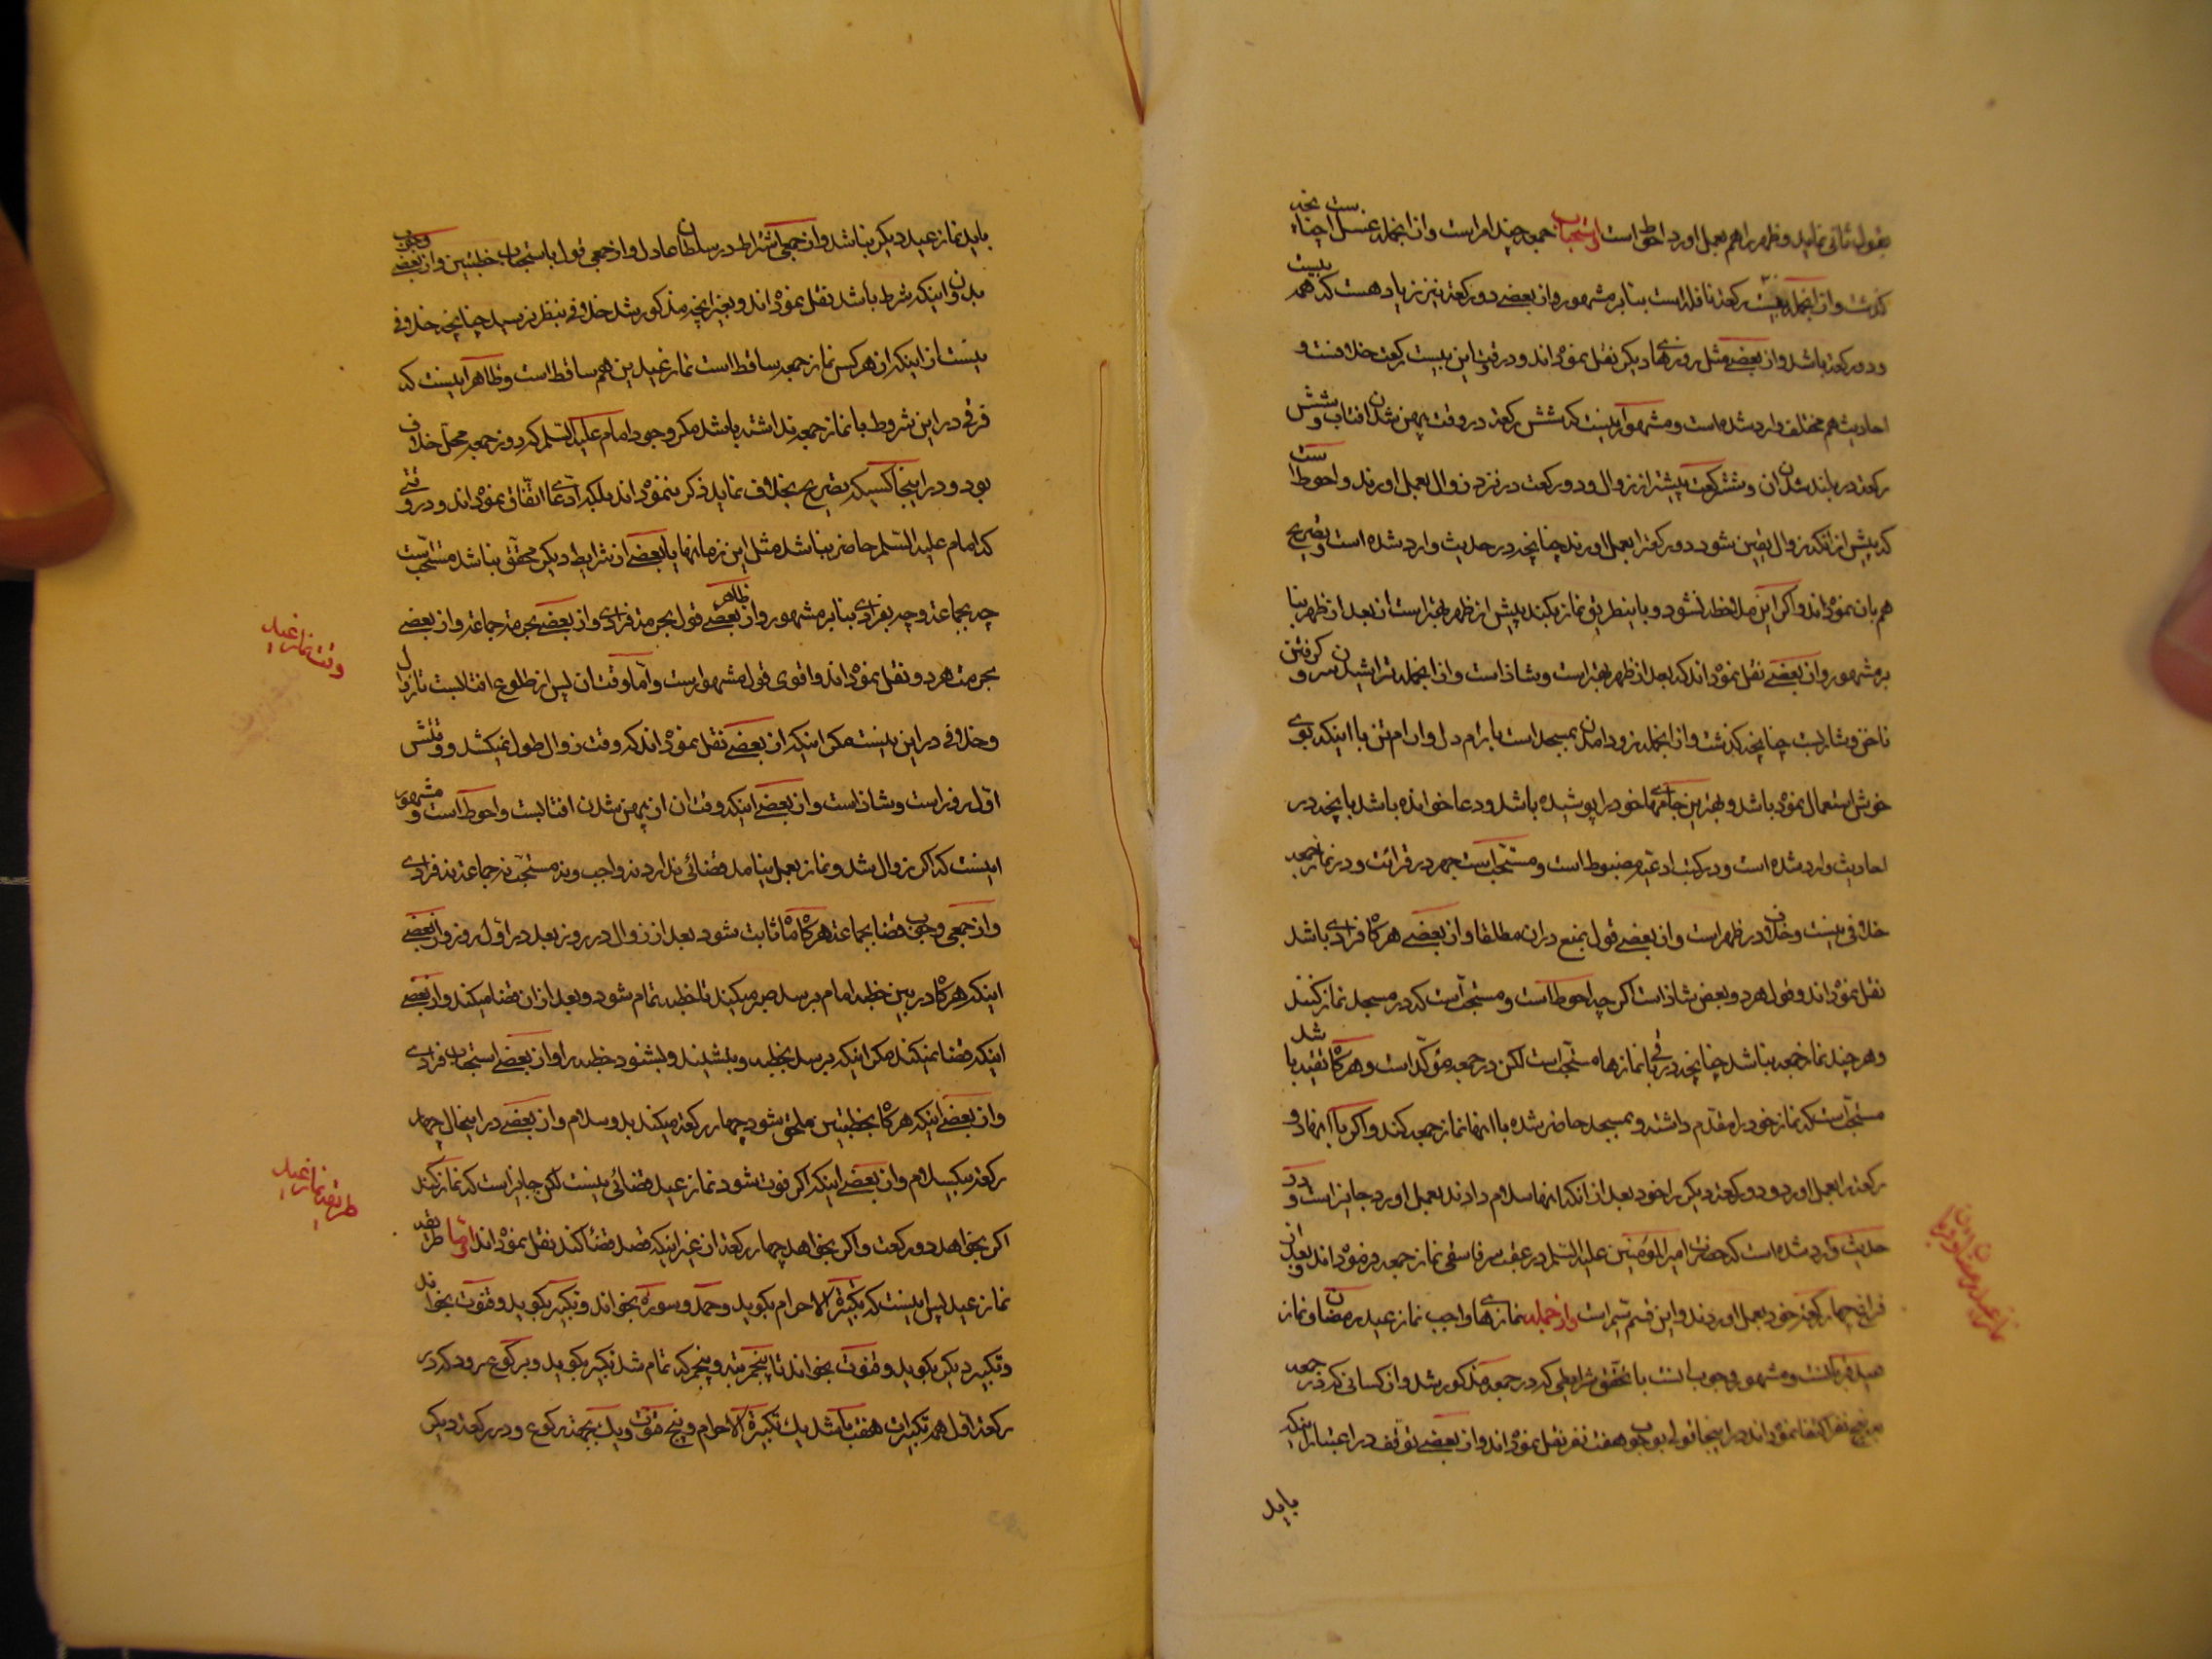 بقول ثانی نماید و ظهر را هم بعمل اورد احوط است و مستحبات جمعه چند امر است و از انجمله غسل است چنانچه
کذشت و از انجمله بیست رکعة نافله است بنا بر مشهور و از بعضے دو رکعة نیز زیاد هست که همه بیست
و دو رکعة باشد و از بعضے مثل روزهای دیکر نقل نموده‌اند و در وقت این بیست رکعت خلافست و
احادیث هم مختلف وارد شده است و مشهور اینست که شش رکعة در وقت پهن شدن افتاب و شش
رکعة در بلند شدن ان و شش رکعت پیشتر از زوال و دو رکعت در نزد زوال بعمل اورند و احوط است
که پیش از انکه زوال یقین شود دو رکعة را بعمل اورند چنانچه در حدیث وارد شده است و تصریح
هم بان نموده‌اند و اکر این ملاحظه نشود و باینطریق نماز بکند پیش از ظهر بهتر است از بعد از ظهر بنا
بر مشهور و از بعضے نقل نموده‌اند که بعد از ظهر بهتر است و شاذ است و از انجمله تراشیدن سر و کرفتن
ناخن و شاربست چنانچه کذشت و از انجمله زود امدن بمسجد است با ارام دل و ارام تن با اینکه بوی
خوش استعمال نموده باشد و بهترین جامهای خود را پوشیده باشد و دعا خوانده باشد بانچه در
احادیث وارد شده است و در کتب ادعیه مضبوط است و مستحب است جهر در قرائت و در نماز جمعه
خلافی نیست و خلاف در ظهر است و از بعضے قول بمنع در ان مطلقا و از بعضے هرکاه فرادی باشد
نقل نموده‌اند و قول هر دو بعض شاذ است اکر چه احوط است و مستحب است که در مسجد نماز کنند
و هر چند نماز جمعه نباشد چنانچه در باقی نمازها مستحب است لکن در جمعه مؤکّد است و هرکاه تقیه باشد
مستحب است که نماز خود را مقدّم داشته و بمسجد حاضر شده با انها نماز جمعه کند و اکر با انها دو
رکعة را بعمل اورد و دو رکعة دیکر را خود بعد از انکه انها سلام دادند بعمل اورد جایز است و در
حدیث وارد شده است که حضرت امیر المؤمنین علیه السّلم در عقب سر فاسقی نماز جمعه فرموده‌اند و بعد از
فراغ چهار رکعة خود بعمل اوردند و این قسم نیز است و از جمله نمازهای واجب نماز عید رمضان و نماز
عید قربانست و مشهور وجوب انست با تحقّق شرایطی که در جمعه مذکور شد و از کسانی که در جمعه
به پنج نفر اکتفا نموده‌اند در اینجا قول بوجوب هفت نفر نقل نموده‌اند و از بعضے توقف در اعتبار اینکه
باید
نماز عید رمضان و قربان
باید نماز عید دیکر نباشد و از جمعی اشتراط در سلطان عادل و از جمعی قول باستحباب خطبتین و از بعضے وجوب
بدون اینکه شرط باشد نقل نموده‌اند و بغیر انچه مذکور شد خلافی بنظر نرسید چنانچه خلافی
نیست از اینکه از هر کس نماز جمعه ساقط است نماز عیدین هم ساقط است و ظاهر اینست که
فرقی در این شروط با نماز جمعه نداشته باشد مکر وجود امام علیه السّلم که در روز جمعه محلّ خلاف
بود و در اینجا کسیکه تصریح بخلاف نماید ذکر ننموده‌اند بلکه ادّعای اتّفاق نموده‌اند و در وقتی
که امام علیه السّلم حاضر نباشد مثل این زمانها یا بعضے از شرایط دیکر محقّق نباشد مستحب است
چه بجماعة و چه بفرادی بنا بر مشهور و از ظاهر بعضے قول بحرمة فرادی و از بعضے بحرمة جماعة و از بعضے
بحرمت هر دو نقل نموده‌اند و اقوی قول مشهور است و امّا وقت ان پس از طلوع افتابست تا زوال
و خلافی در این نیست مکر اینکه از بعضے نقل نموده‌اند که وقت زوال طول نمیکشد و وقتش
اوّل روز است و شاذ است و از بعضے اینکه وقت ان از پهن شدن افتابست و احوط است و مشهور
اینست که اکر زوال شد و نماز بعمل نیامد قضائی ندارد نه واجب و نه مستحب نه جماعة نه فرادی
و از جمعی وجوب قضا بجماعة هرکاه ماه ثابت شود بعد از زوال در روز بعد در اوّل روز و از بعضے
اینکه هرکاه در بین خطبه امام برسد صبر میکند تا خطبه تمام شود و بعد از ان قضا میکند و از بعضے
اینکه قضا نمیکند مکر اینکه برسد بخطبه و بنشیند و بشنود خطبه را و از بعضے استحباب فرادی
و از بعضے اینکه هرکاه بخطبتین ملحق شود چهار رکعة میکند بدو سلام و از بعضے در اینحال چهار
رکعة بیکسلام و از بعضے اینکه اکر فوت شود نماز عید قضائی نیست لکن جایز است که نماز کند
اکر بخواهد دو رکعت و اکر بخواهد چهار رکعة از غیر اینکه قصد قضا کند نقل نموده‌اند و امّا طریقه
نماز عید پس اینست که تکبیرة الاحرام بکوید و حمد و سوره بخواند و تکبیر بکوید و قنوت بخواند
و تکبیر دیکر بکوید و قنوت بخواند تا پنجمرتبه و پنجم که تمام شد تکبیر بکوید و برکوع رود که در
رکعة اوّل همه تکبیرات هفت باشد یك تکبیرة الاحرام و پنج قنوت و یك بجهة رکوع و در رکعة دیکر
وقت نماز عید
طریقه نماز عید